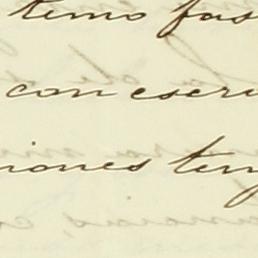 temo fas
con escri
iones ten